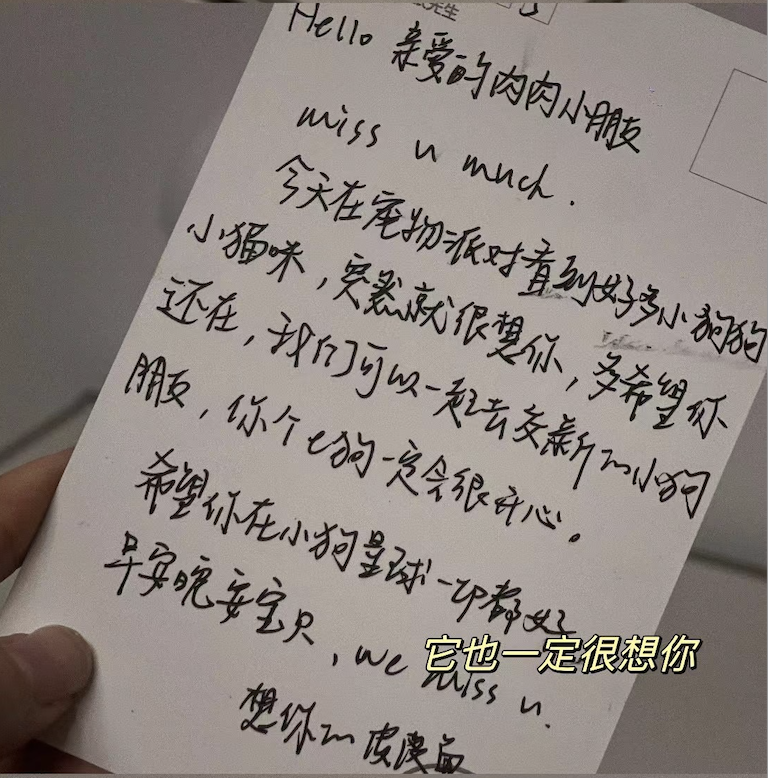 先生
Hello 亲爱的肉肉小朋友
miss u much.
今天在宠物派对看到好多小狗狗
小猫咪，突然就很想你，多希望你
还在，我们可以一起去交新的小狗
朋友，你个e狗一定会很开心。
希望你在小狗星球一切都好
早安晚安宝贝，we miss u.
它也一定很想你
想你的皮皮